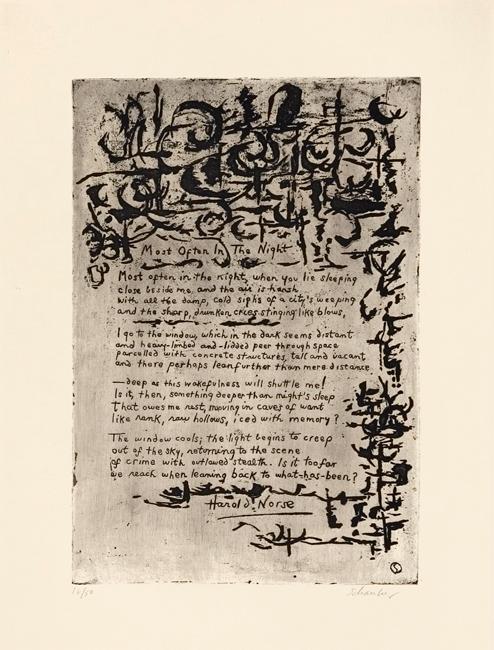 Most Often In The Night
Most often in the night, when you lie sleeping
close beside me, and the air is harsh
with all the damp, cold sighs of a city's weeping
and the sharp, drunken, cries stinging like blows,
I go to the window, which in the dark seems distant
and heavy-limbed and -lidded peer through space
parcelled with concrete structures, tall and vacant
and there perhaps lean further than mere distance
—deep as this wakefulness will shuttle me!
Is it, then, something deeper than night's sleep
that owes me rest, moving in caves of want
like rank, raw hollows, iced with memory?
The window cools; the light begins to creep
out of the sky, returning to the scene
of crime with outlawed stealth. Is it too far
we reach when leaning back to what-has-been?
Harold Norse
S
16/50